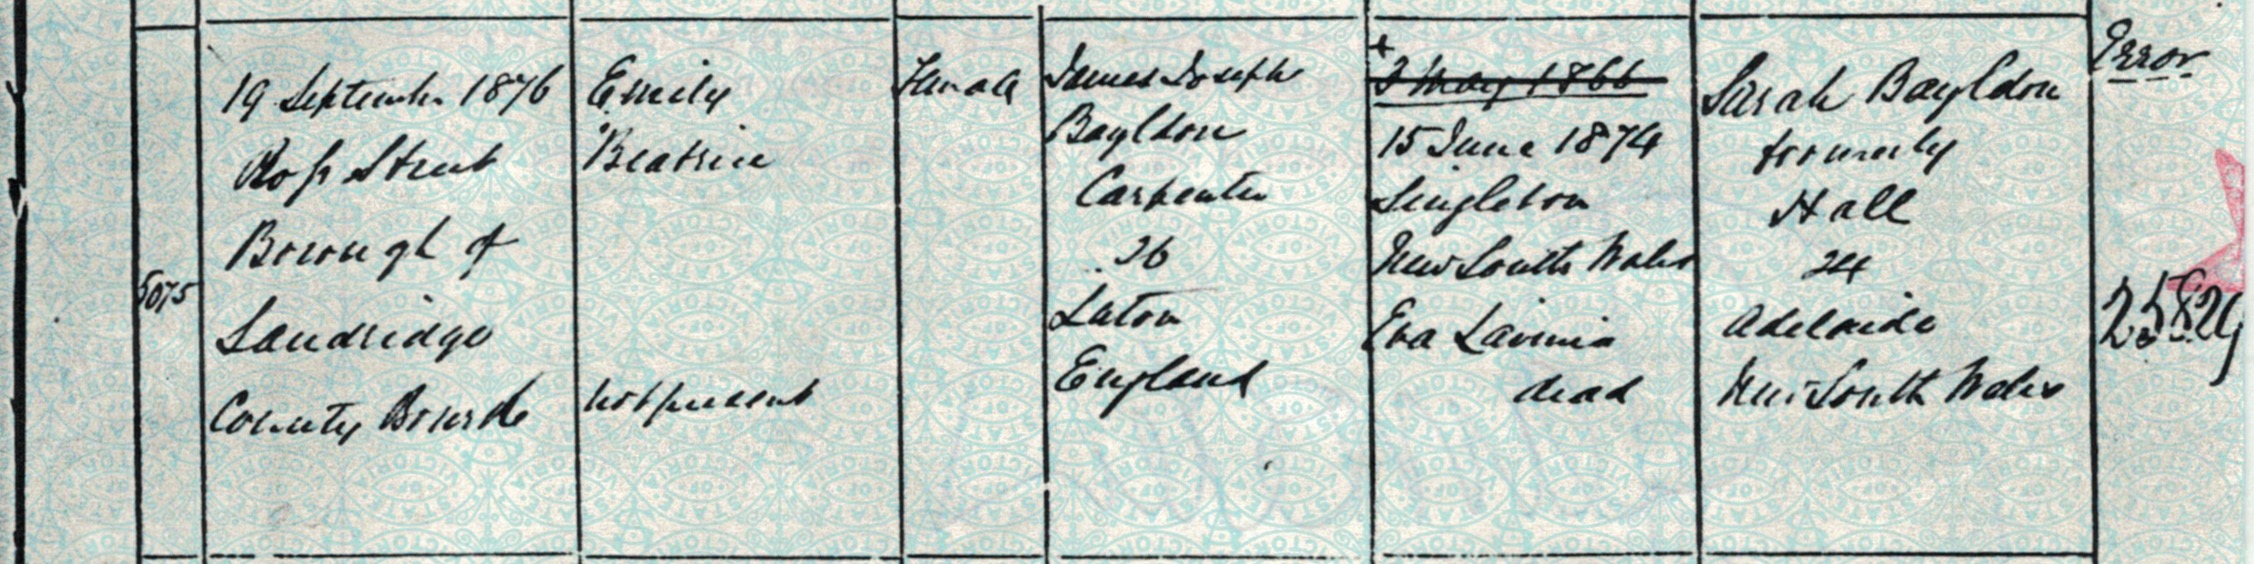 5075
19 September 1876
Ross Street
Borough of
Sandridge
County Bourke
Emily
Beatrice
not present
Female
James Joseph
Bayldon
Carpenter
26
Luton
England
+
3 May 1866
15 June 1874
Singleton
New South Wales
Eva Lavinia
dead
Sarah Bayldon
formerly
Hall
24
Adelaide
New South Wales
Error
25829
STATE OF VICTORIA